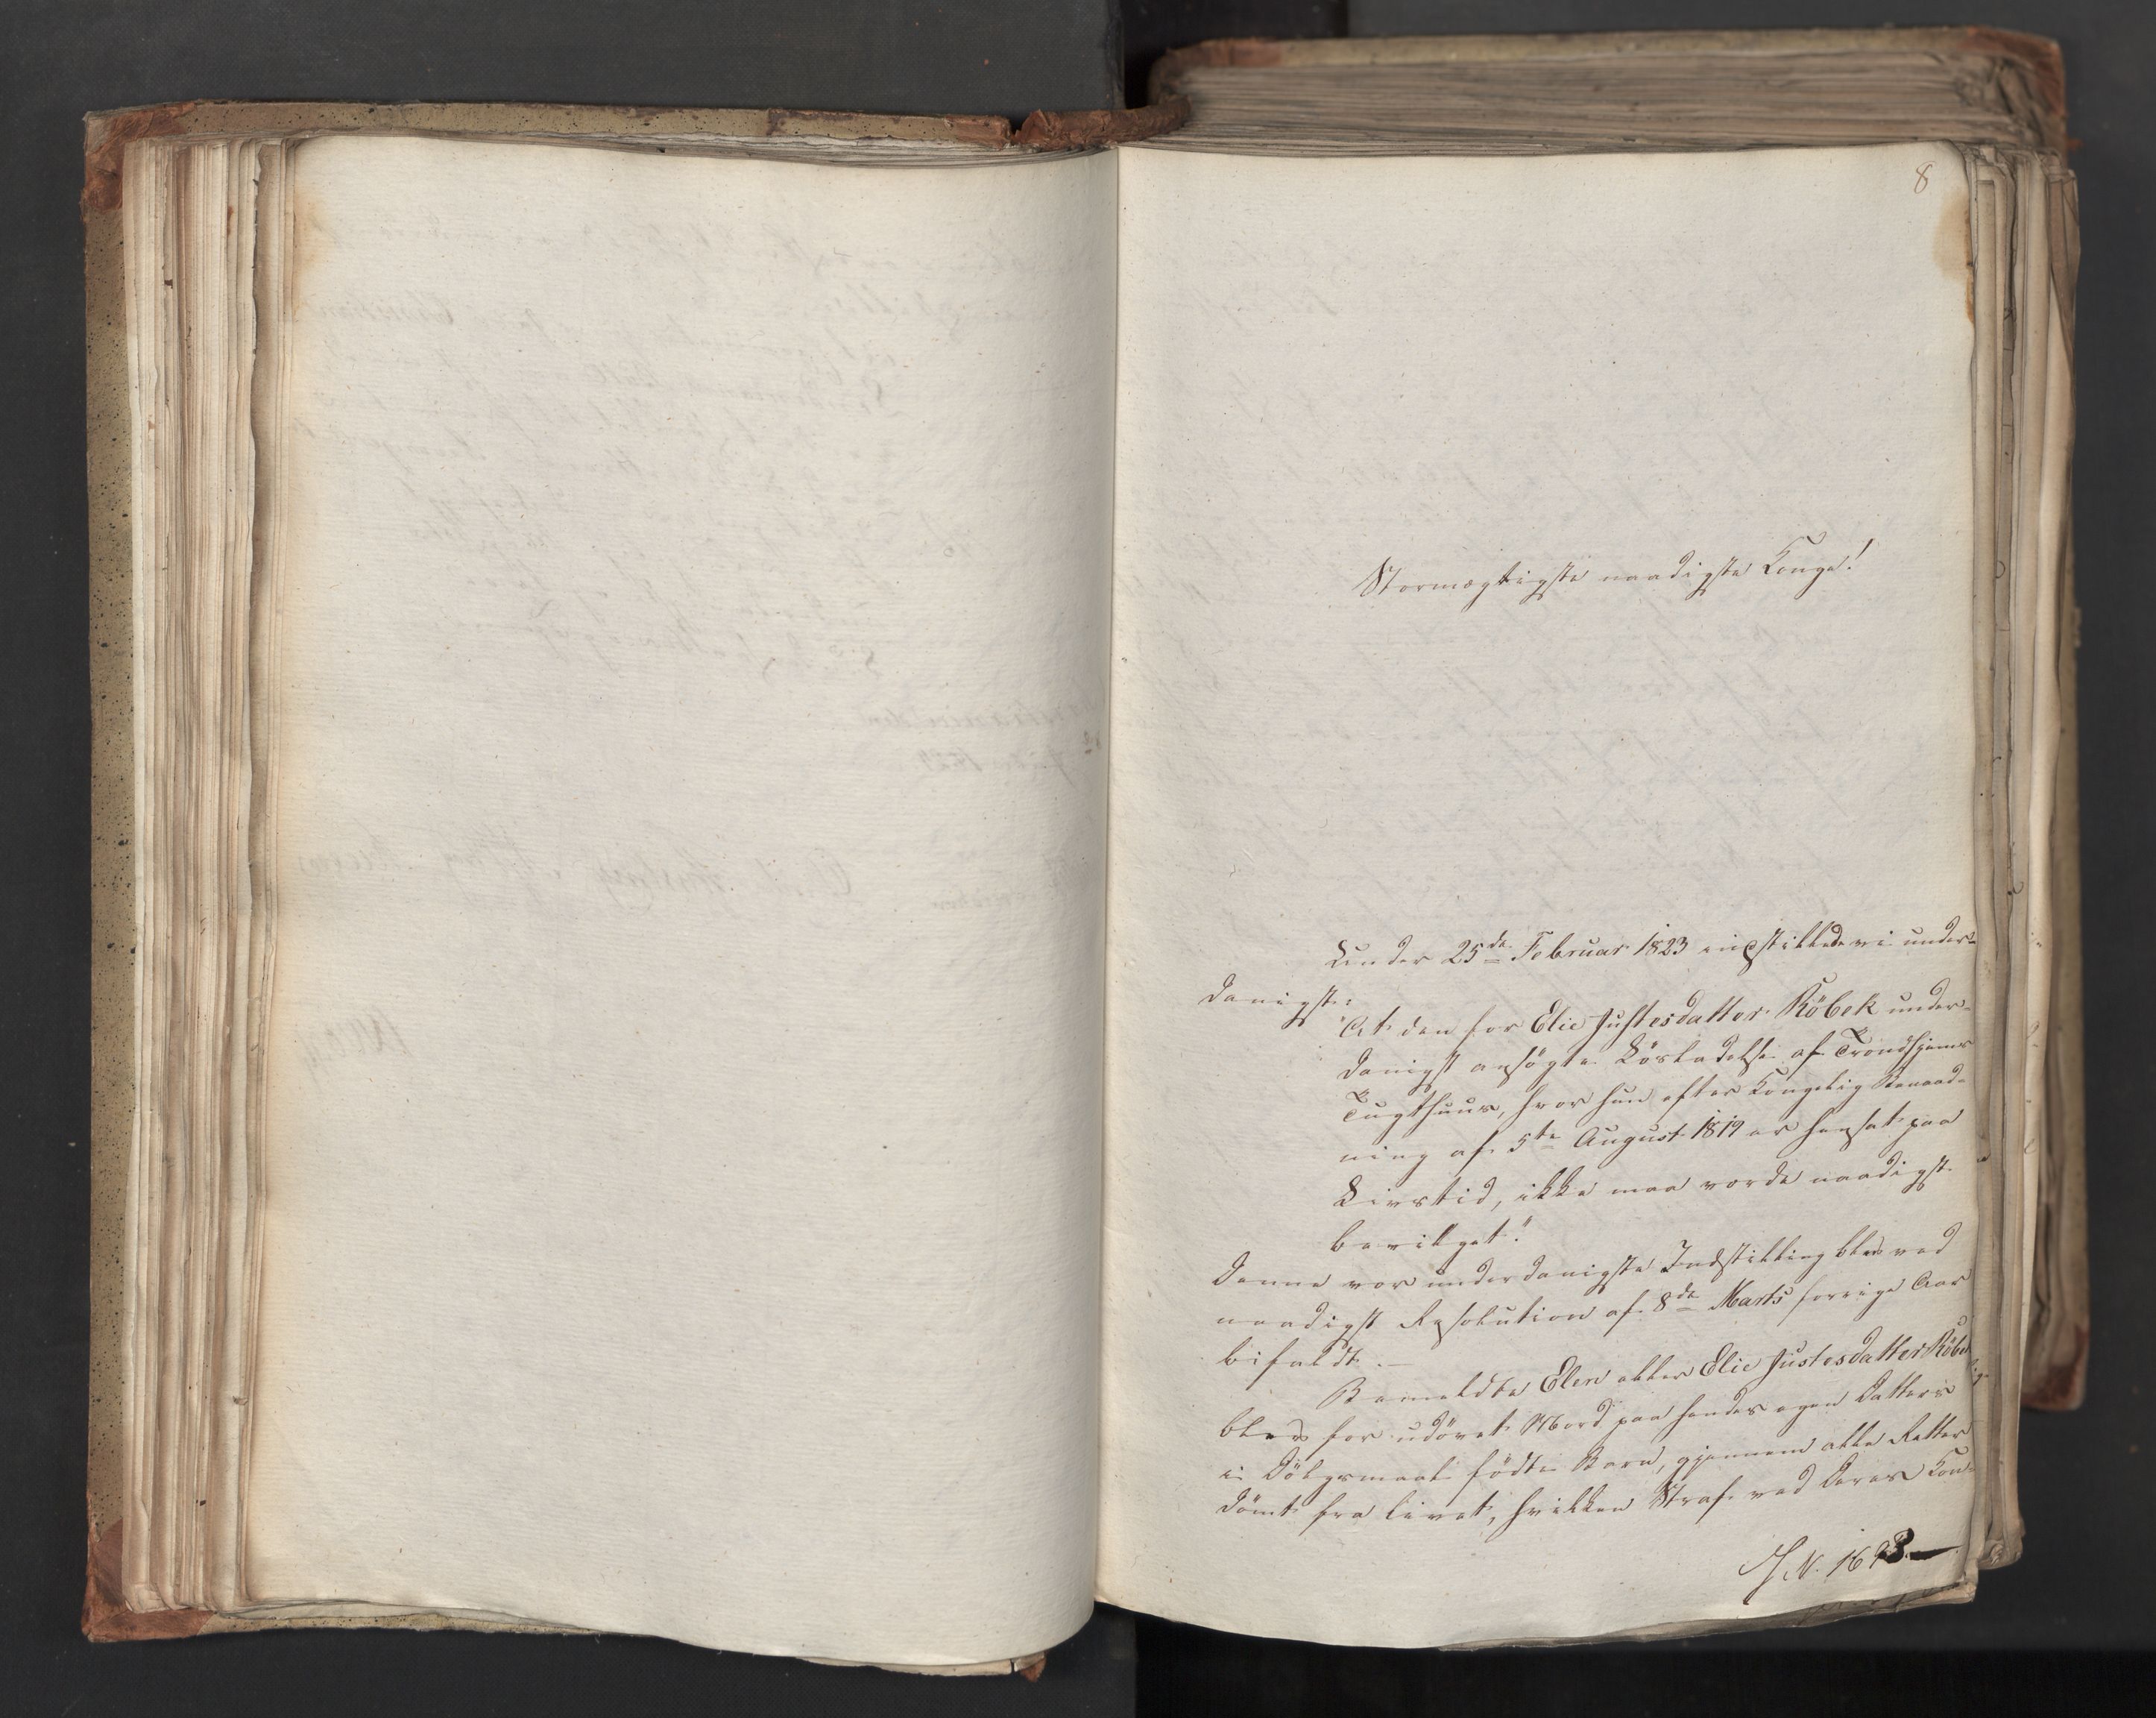 8
Stormægtigste naadigste Konge!
Under 25de Februar 1823 indstillede vi under-
danigst:
"At den for Elie Justesdatter Röbek under-
danigst ansögte Lösladelse af Trondhjems
Tugthuus, hvor hun efter Kongelig Benaad-
ning af 5te August 1819 er hensat paa
Livstid, ikke maa vorde naadigst
bevilget."
Denne vor underdanigste Indstilling blev ved
naadigst Resolution af 8de Marts forrige Aar
bifaldt.–
Bemeldte Elen eller Elie Justesdatter Röbek
blev for udövet Mord paa hendes egen Datters
i Dölgsmaal födte Barn, gjennem alle Retter
dömt fra Livet, hvilken Straf ved Deres Kon-
J. N. 1623.—